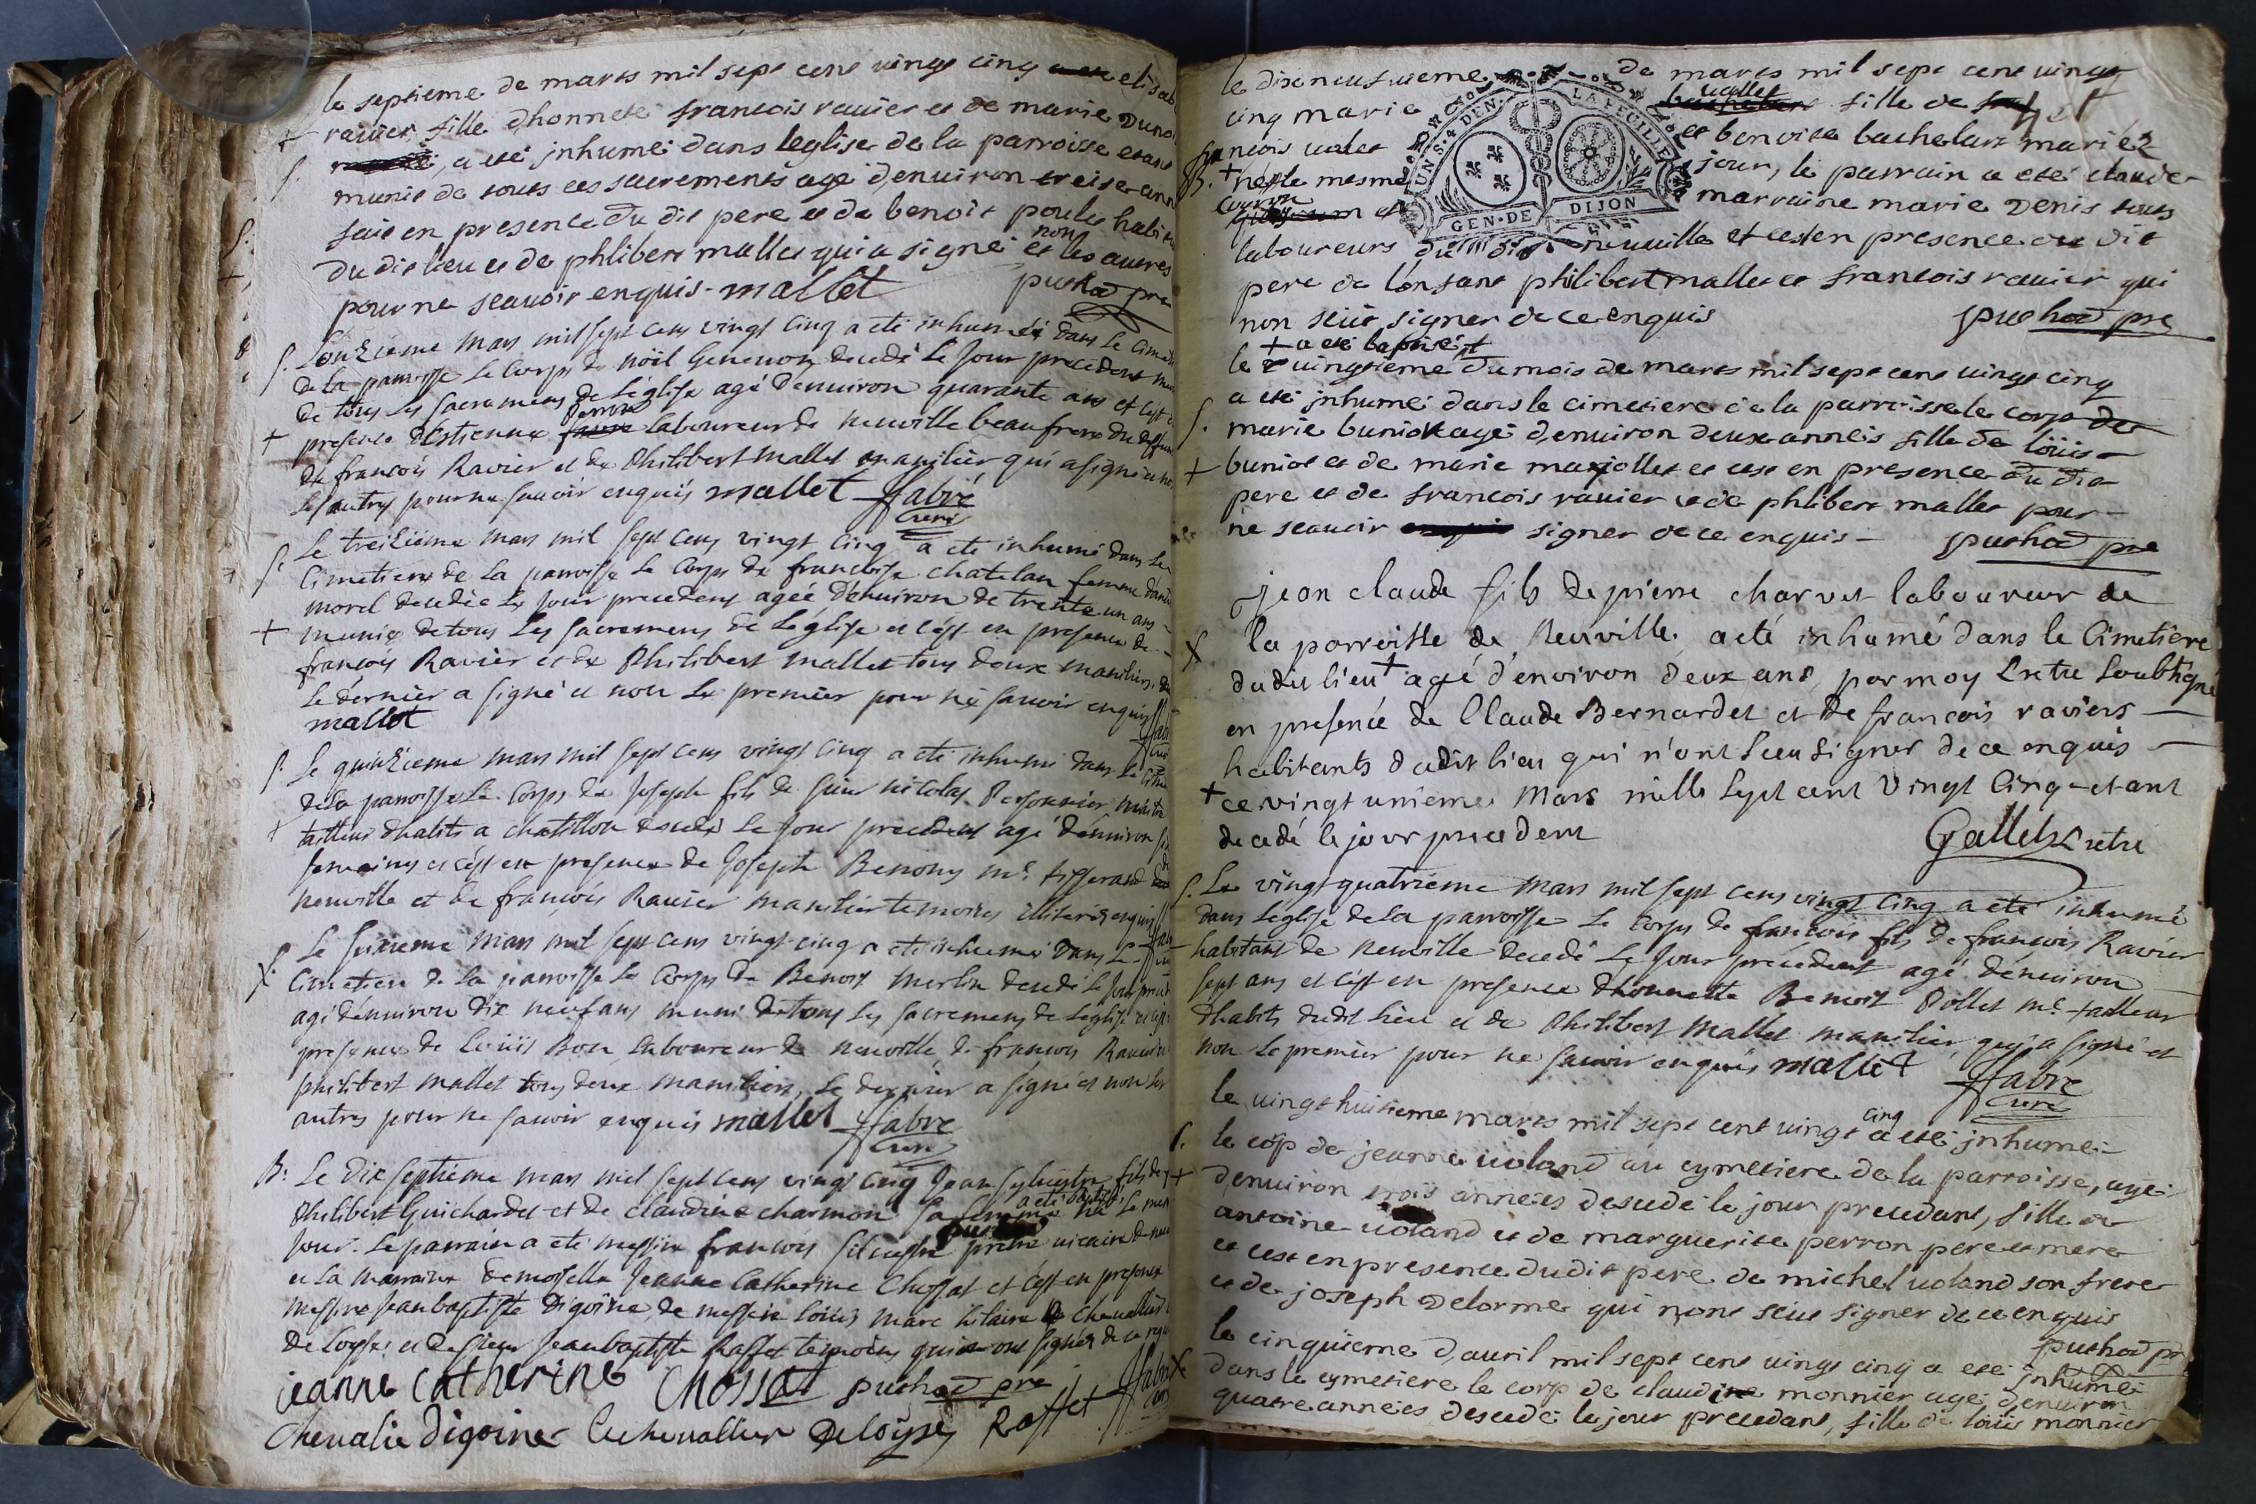 le septieme de mars mil sept cent vingt cinq
ravier, fille dhonnete francois ravier et de marie
a eté jnhumé dans leglise de la parroisse etant
munie de touts ces sacrements agé denviron treise ann
fait en presence du dit pere et de benoit poulet habi
non
du dit lieu et de phlibert mallet qui a signé et les autres
pour ne scavoir enquis - mallet puthod pre
L'onzieme mars mil sept cens vingt cinq a eté inhumé dans le cime
de la parroisse le corps de noël Genevon decedé le jour precedent
de tous les sacremens de l'eglise agé d'environ quarante ans et c'est
perron
presence d'estienne laboureur de neuville beaufrere du deffun
de francois Ravier et de Philibert mallet manilier qui a signé
les autres pour ne scavoir enquis mallet ffabre
curé
Le treizieme mars mil sept cens vingt cinq a eté inhumé dans le
Cimetiere de la parroisse le corps de francoise chatelan femme
morel decedée le jour precedent agée d'environ de trente un ans
munie de tous les sacremens de l'église et c'est en presence de
francois Ravier et de Philibert mallet tous deux maniliers
le dernier a signé et non le premier pour ne scavoir enquis
mallet
Le quinzieme mars mil sept cens vingt cinq a eté inhumé dans le
de la parroisse le corps de joseph fils de sieur nicolas Personnier maitre
tailleur d'habits a chatillon decedé le jour precedent agé d'environ
semaines et c'est en presence de joseph Benony me tisserand
neuville et de francois Ravier manilier temoins illiterés enquis
Le seizieme mars mil sept cens vingt cinq a eté inhumé dans le
Cimetiere de la parroisse le corps de Benoit merlin decedé le jour
agé d'environ dix neuf ans muni de tous les sacremens de l'eglise
presence de Louis Bon laboureur de neuville de francois Ravier
philibert mallet tous deux maniliers, le dernier a signé et non les
autres pour ne scavoir enquis mallet ffabre
curé
B: Le dix septieme mars mil sept cens vingt cinq Jean sylvestre fils de
a eté baptisé
Philibert Guichardet et de claudine charmon sa femme né le
jour. Le parrain a eté messire francois silvestre pretre vicaire de
et la marraine demoiselle Jeanne Catherine Chossat et c'est en presence
messire jean baptiste digoine, de messire louis marc hilaire chevallier
de loyse et de sieur jean baptiste Raffet temoins qui ont signés de ce
jeanne Catherine Chossat puthod pre
Chevalie digoine Le chevallier Deloyse Raffet ffabre
le dixneufvieme de mars mil sept cent vingt
vallet
cinq marie fille de
francois valet et benoite bachelart mariez
B. + né le mesme jour, le parrain a eté claude
marraine marie denis touts
UN S. 4 DEN. LA FEUILLE
GEN. DE DIJON
laboureurs du dit neuville et cest en presence du dit
pere de lonfant philibert mallet et francois ravier qui
non sceut signer de ce enquis puthod pre
+ a eté baptisé +
le vingtieme du mois de mars mil sept cent vingt cinq
a eté jnhumé dans le cimetiere de la parroisse le corp de
marie buniot agé denviron deux anneés fille de loüis
buniot et de marie marjollet et cest en presence du dit
pere et de francois ravier et de phlibert mallet pour
ne scavoir signer de ce enquis puthod pre
jean claude fils de pierre charvet laboureur de
la parroisse de Neuville, a eté inhumé dans le Cimetiere
dudit lieu + agé d'environ deux ans, par moy Pretre soubsigné
en presence de Claude Bernardet et de francois raviers
habitants dudit lieu qui n'ont sceu signer de ce enquis
+ ce vingt unieme Mars mille sept cent Vingt Cinq etant
decedé le jour precedent Gallet Pretre
Le vingt quatrieme mars mil sept cens vingt cinq a eté inhumé
dans l'eglise de la parroisse le corps de francois fils de francois Ravier
habitant de neuville decedé le jour precedent agé d'environ
sept ans et c'est en presence d'honneste Benoist Pollet me tailleur
d'habits dudit lieu et de Philibert mallet manilier, qui a signé et
non le premier pour ne scavoir enquis mallet ffabre
curé
cinq
le vingt huitieme mars mil sept cent vingt a eté jnhumé
le corp de jeanne voland au cymetiere de la parroisse, agé
denviron trois anneés decedé le jour precedant, fille de
antoine voland et de marguerite perron pere et mere
et cest en presence dudit pere de michel voland son frere
et de joseph delorme qui nont sceu signer de ce enquis
puthod pre
le cinquieme d'avril mil sept cent vingt cinq a eté jnhumé
dans le cymetiere le corp de claudine monnier agé denviron
quatre anneés decedé le jour precedant, fille de loüis monnier